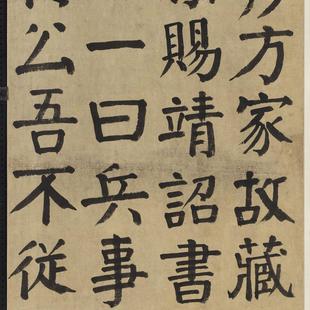 方家故藏
賜靖詔書
一曰兵事
公吾不從